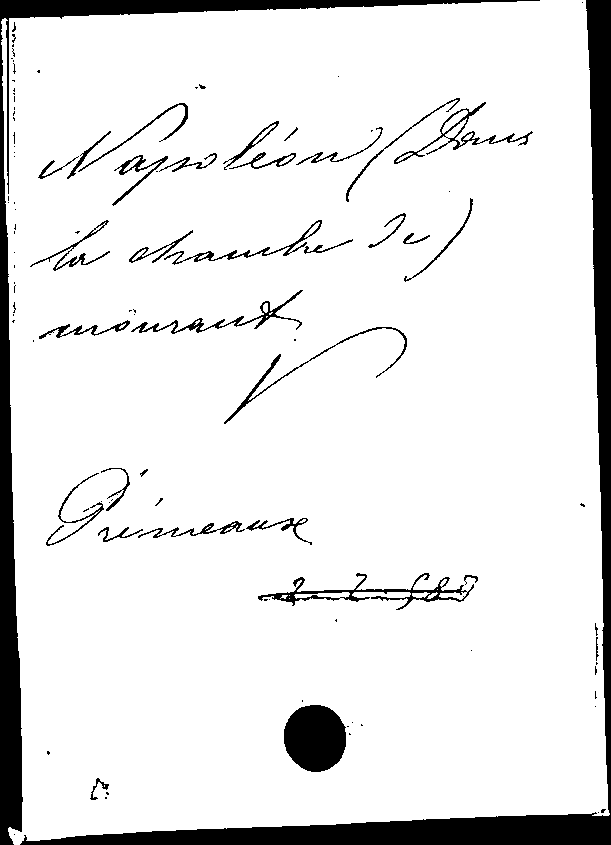 Napoléon (Dans
la chambre de)
mourant
Prémeaux